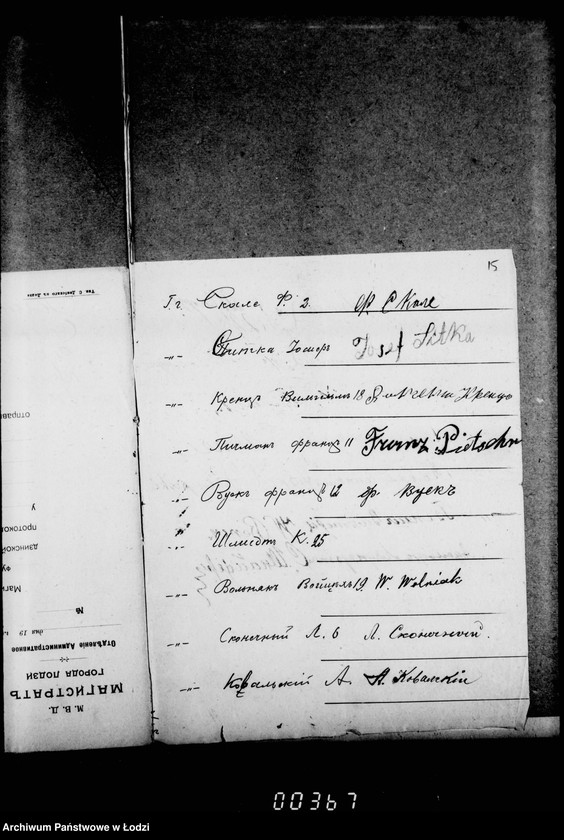 15
Г.г. Скале Ф. 2. Ф Скале
-„- Ситка Iосифъ Josef Sitka
-„- Кренцъ Вильгельмъ 18
-„- Пичманъ францъ 11 Franz Pietschm
-„- Вуекъ францъ 12 Ф. Вуекъ
-„- Шмидтъ К. 25
-„- Вольнякъ Войцехъ 19. W. Wolniak
-„- Сконечный Л. 6 Л. Сконечный.
-„- Ковальскій А. А. Ковалскій
М. В. Д.
МАГИСТРАТЪ
ГОРОДА ЛОДЗИ
Отдѣленіе Административное
дня 19
№
Маги
У
отправи
00367
Archiwum Państwowe w Łodzi